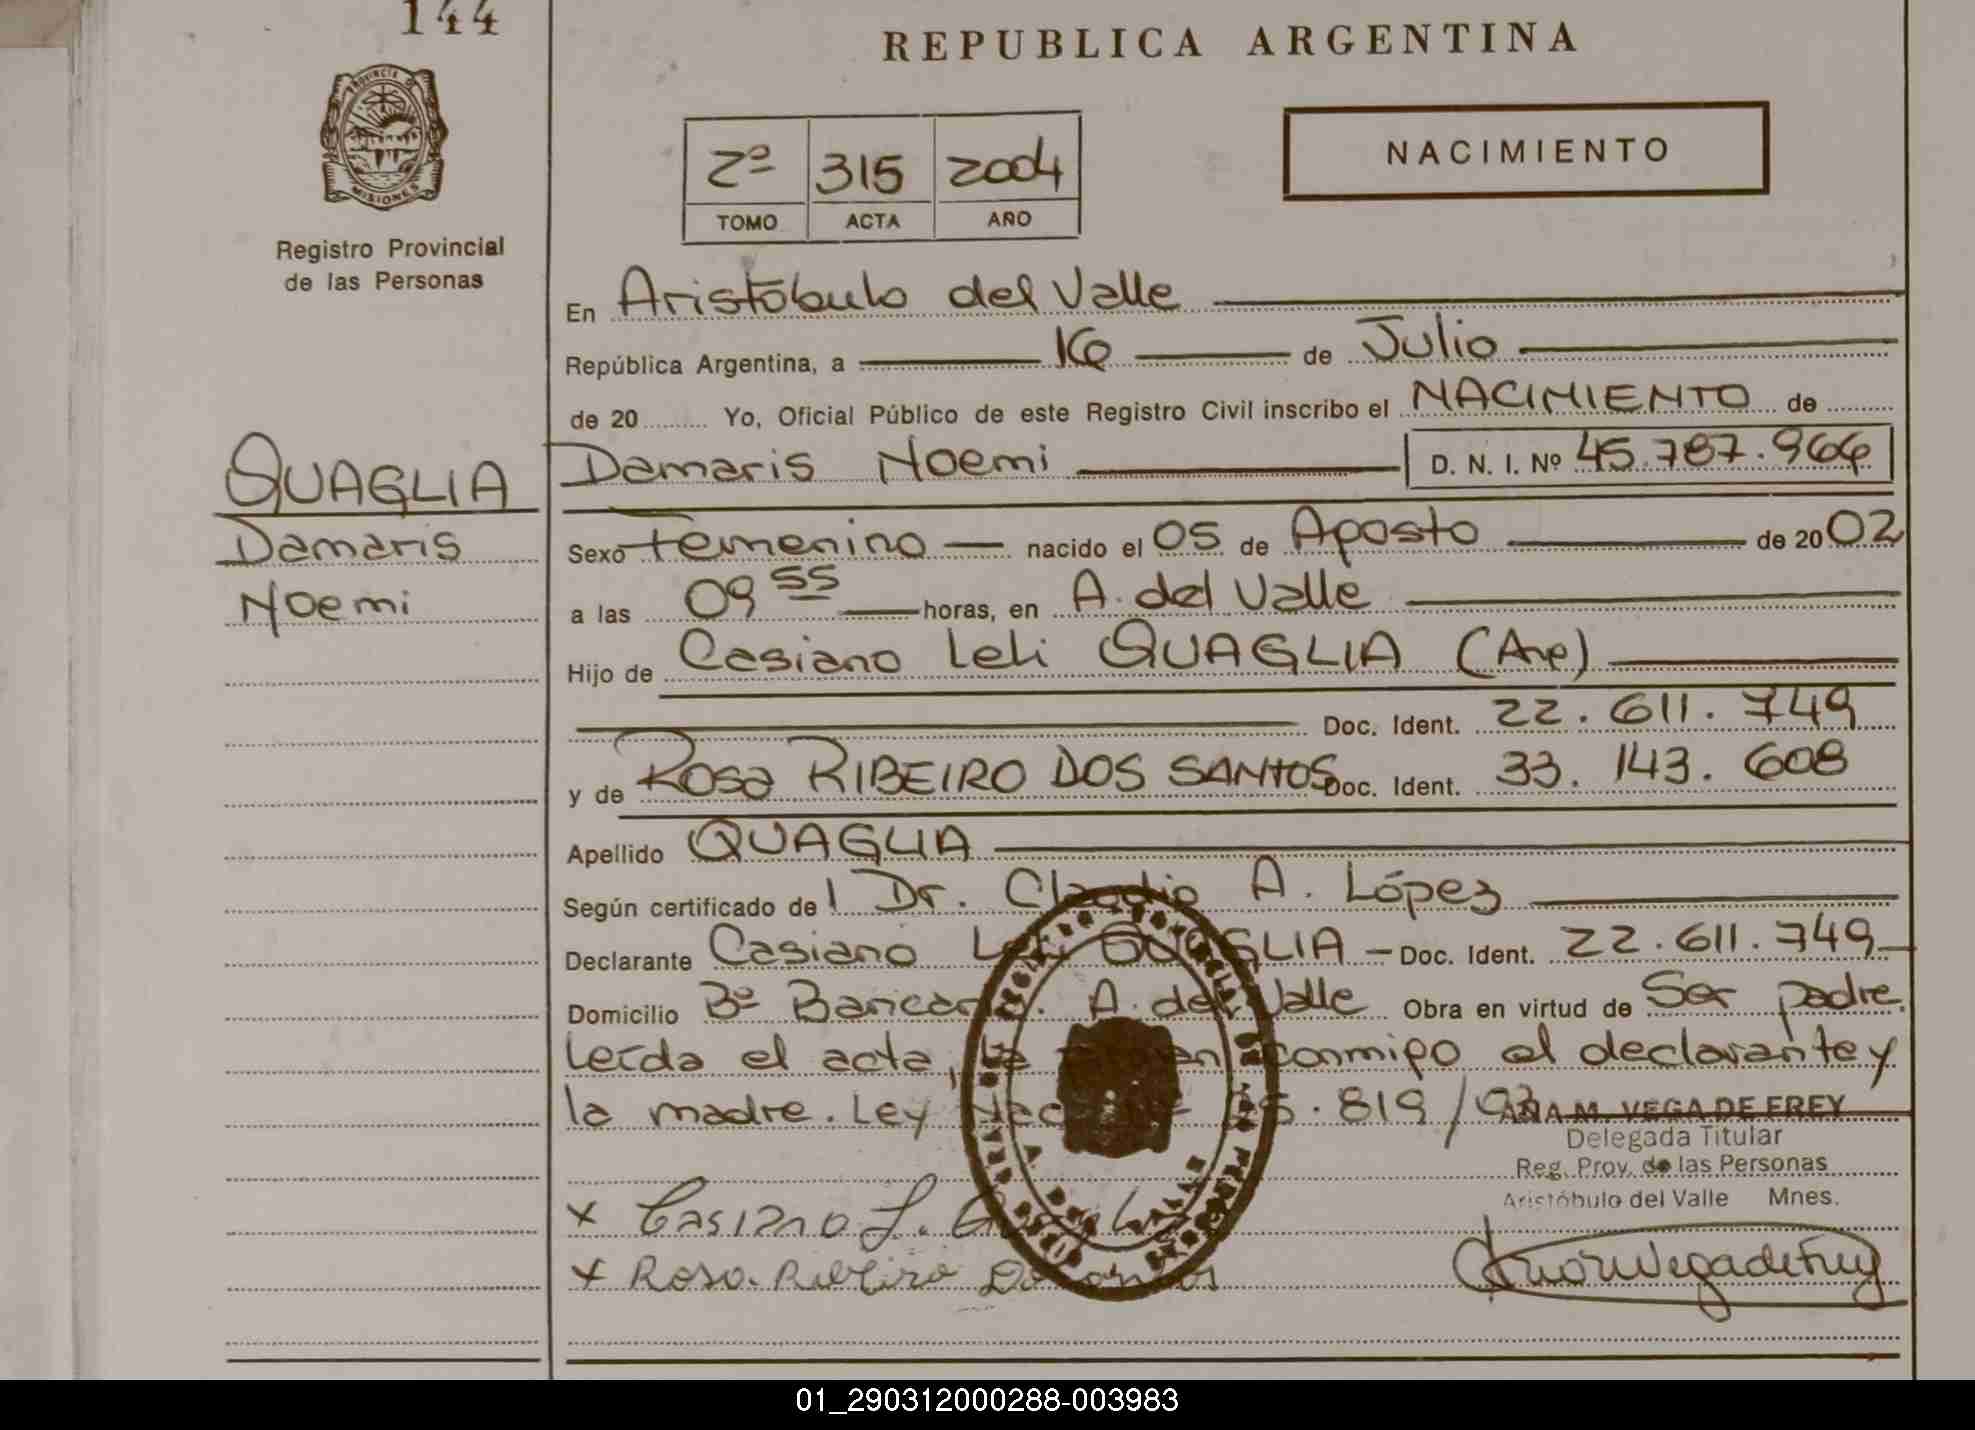 144
REPUBLICA ARGENTINA
PROVINCIA DE
MISIONES
Registro Provincial
de las Personas
2º 315 2004
TOMO ACTA AÑO
NACIMIENTO
En Aristóbulo del Valle
República Argentina, a 16 de Julio
de 20 Yo, Oficial Público de este Registro Civil inscribo el NACIMIENTO de
QUAGLIA
Damaris
Noemi
Damaris Noemi D. N. I. Nº 45.787.966
Sexo Femenino nacido el 05 de Agosto de 2002
a las 09 55 horas, en A. del Valle
Hijo de Casiano Leli QUAGLIA (Arg)
Doc. Ident. 22.611.749
y de Rosa RIBEIRO DOS SANTOS Doc. Ident. 33.143.608
Apellido QUAGLIA
Según certificado del Dr. Claudio A. López
Declarante Casiano QUAGLIA - Doc. Ident. 22.611.749
Domicilio Bº A. del Valle Obra en virtud de Ser padre.
Leída el acta, la conmigo el declarante y
la madre. Ley 819/93
ANA M. VEGA DE FREY
Delegada Titular
Reg. Prov. de las Personas
Aristóbulo del Valle Mnes.
x Casiano L.
x Rosa Ribeiro
01_290312000288-003983